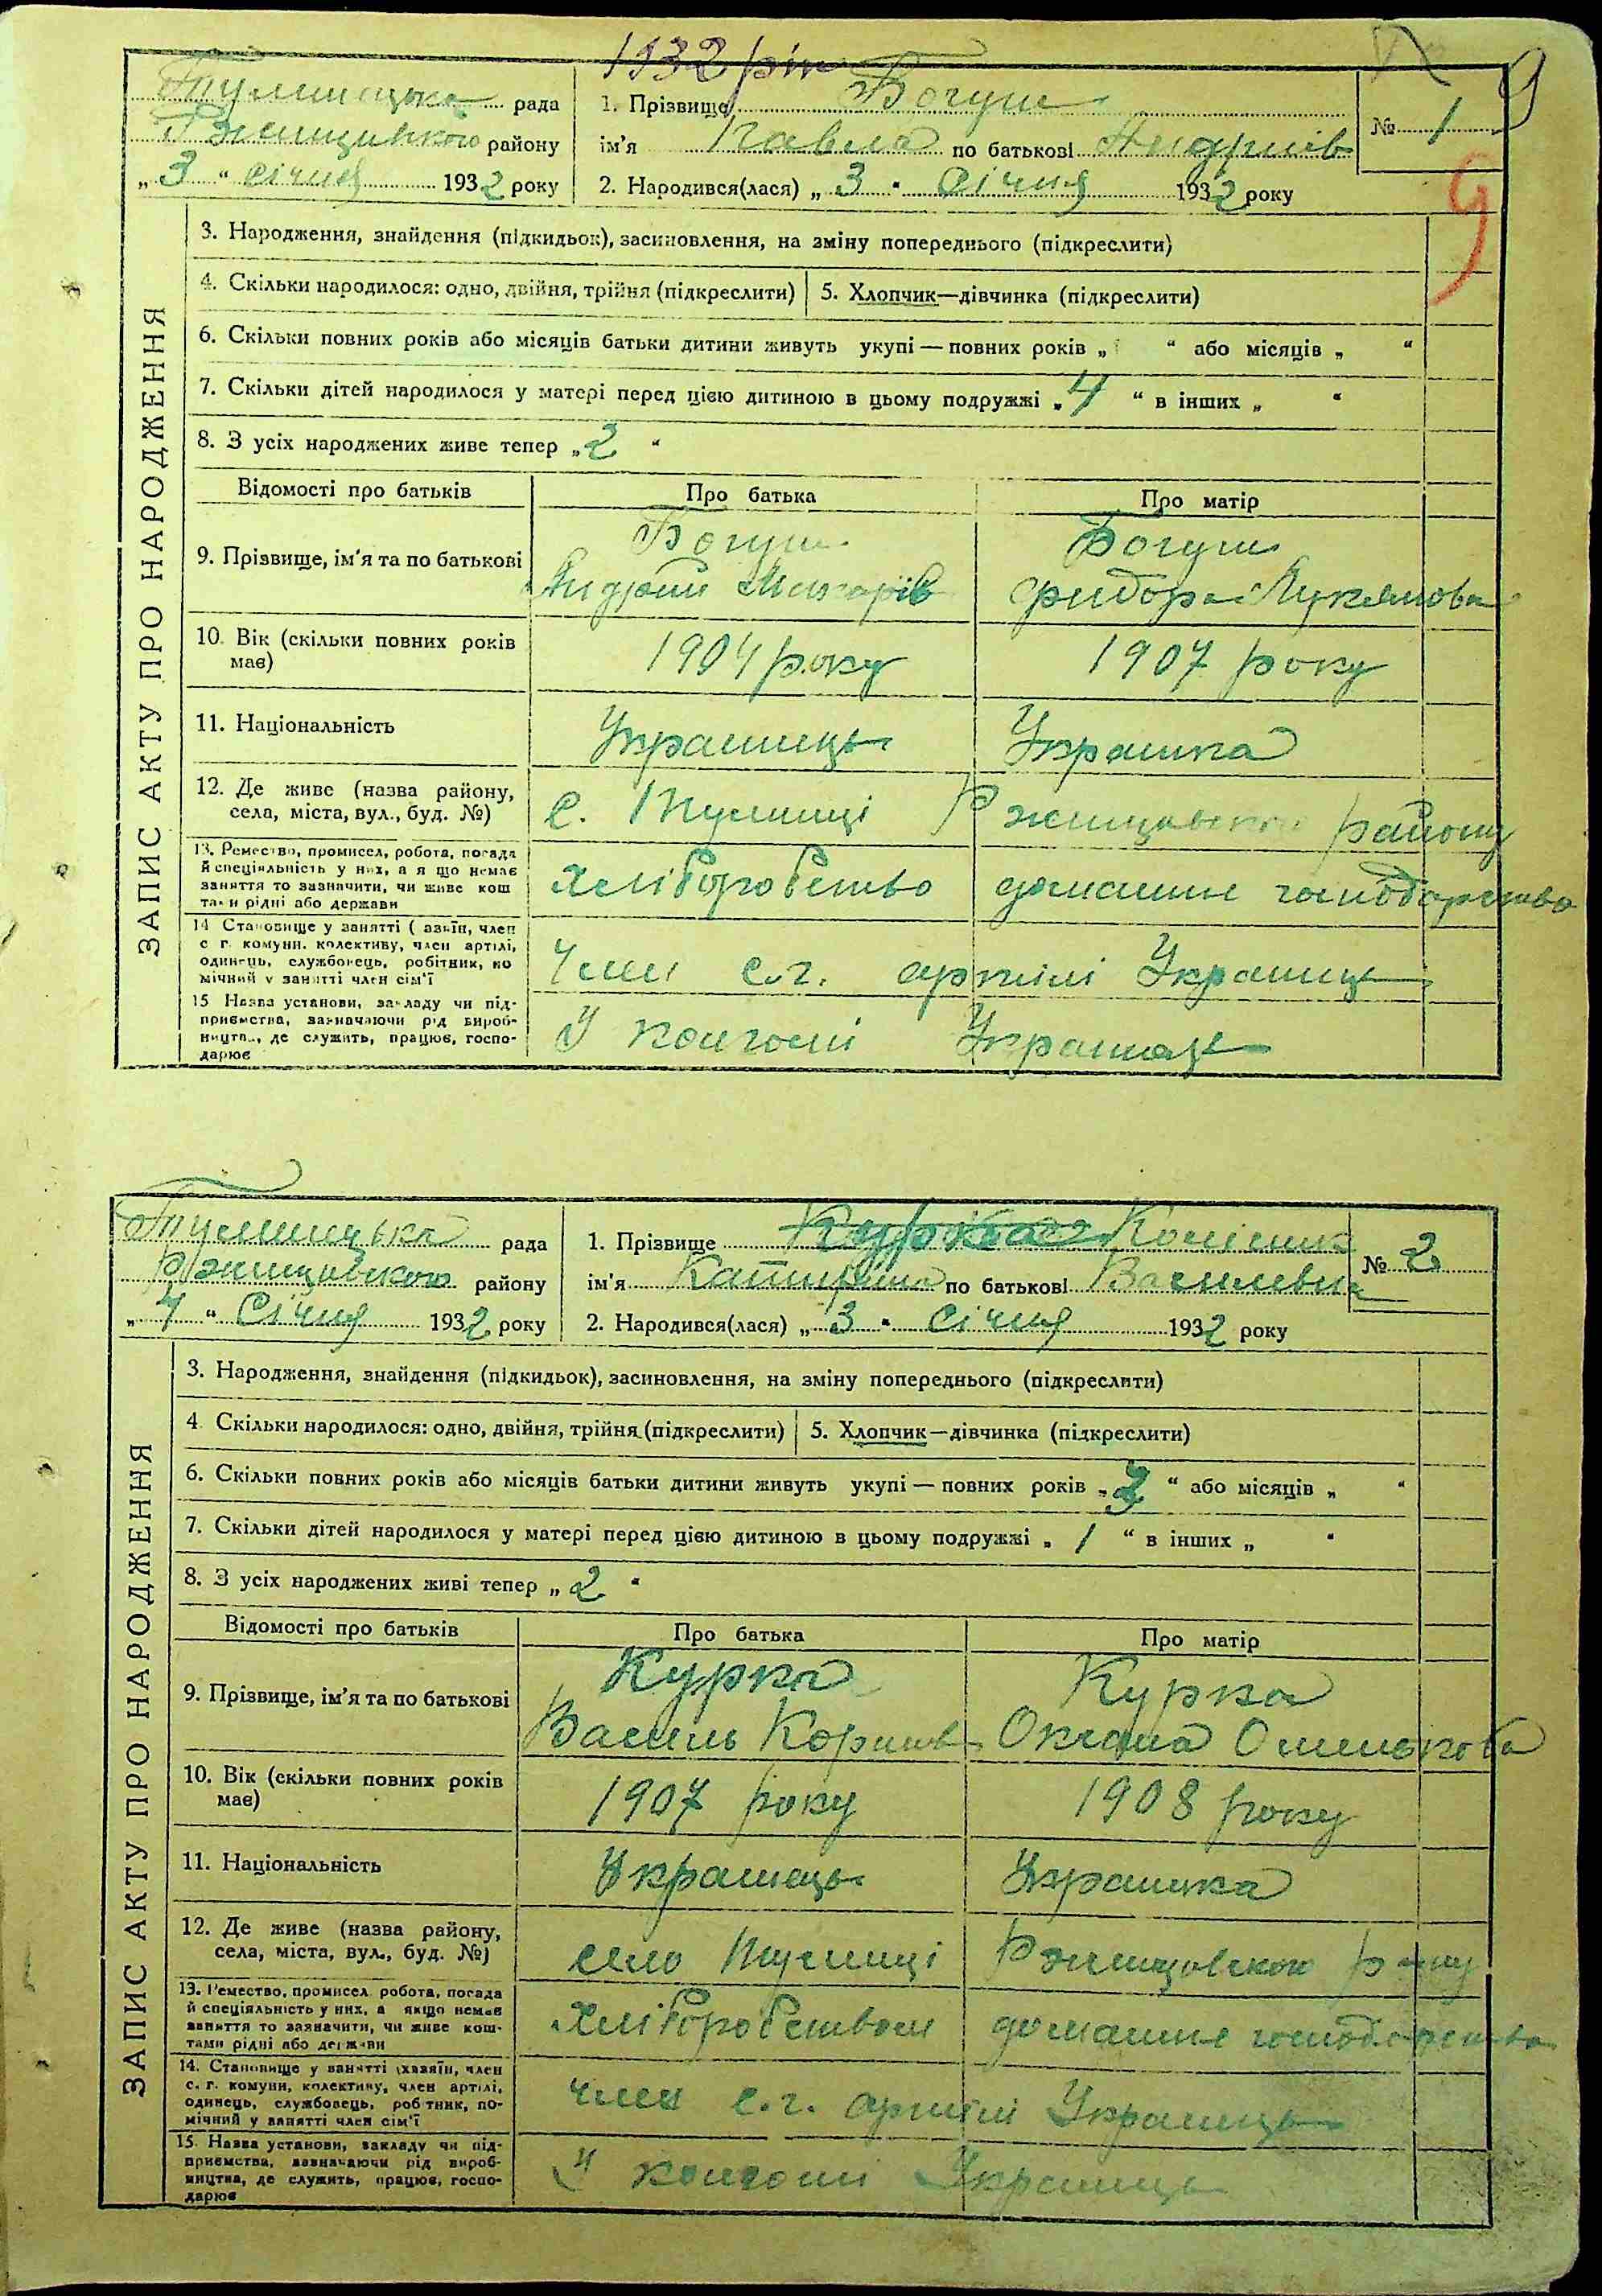 1932 рік
9
рада
району
„ 3 “ січня 1932 року
1. Прізвище Богуш
ім'я Павло по батькові Андріїв
2. Народився(лася) „ 3 “ Січня 1932 року
№ 1
9
ЗАПИС АКТУ ПРО НАРОДЖЕННЯ
3. Народження, знайдення (підкидьок), засиновлення, на зміну попереднього (підкреслити)
4. Скільки народилося: одно, двійня, трійня (підкреслити)
5. Хлопчик—дівчинка (підкреслити)
6. Скільки повних років або місяців батьки дитини живуть укупі — повних років „ “ або місяців „ “
7. Скільки дітей народилося у матері перед цією дитиною в цьому подружжі „ 4 “ в інших „ “
8. З усіх народжених живе тепер „ 2 “
Відомості про батьків
Про батька
Про матір
9. Прізвище, ім'я та по батькові
Богуш
Богуш
10. Вік (скільки повних років
має)
1904 року
1907 року
11. Національність
Українець
Українка
12. Де живе (назва району,
села, міста, вул., буд. №)
с. району
13. Ремество, промисел, робота, посада
й спеціяльність у них, а я що немає
заняття то зазначити, чи живе кош
та и рідні або держави
хліборобство
домашнє господарство
14 Становище у занятті ( азяїн, член
с г. комуни. колективу, член артілі,
одинець, службовець, робітник, по
мічний у занятті член сім'ї
Член с.г. артілі Українець
15 Назва установи, закладу чи під-
приємства, зазначаючи рід вироб-
ництва, де служить, працює, госпо-
дарює
У колгоспі Українець
рада
району
„ 4 “ Січня 1932 року
1. Прізвище
ім'я по батькові Василівна
2. Народився(лася) „ 3 “ Січня 1932 року
№ 2
ЗАПИС АКТУ ПРО НАРОДЖЕННЯ
3. Народження, знайдення (підкидьок), засиновлення, на зміну попереднього (підкреслити)
4. Скільки народилося: одно, двійня, трійня (підкреслити)
5. Хлопчик—дівчинка (підкреслити)
6. Скільки повних років або місяців батьки дитини живуть укупі — повних років „ 3 “ або місяців „ “
7. Скільки дітей народилося у матері перед цією дитиною в цьому подружжі „ 1 “ в інших „ “
8. З усіх народжених живі тепер „ 2 “
Відомості про батьків
Про батька
Про матір
9. Прізвище, ім'я та по батькові
Курка
Василь
Курка
Оксана
10. Вік (скільки повних років
має)
1907 року
1908 року
11. Національність
Українець
Українка
12. Де живе (назва району,
села, міста, вул., буд. №)
село
13. Ремество, промисел робота, посада
й спеціяльність у них, а якщо немає
заняття то зазначити, чи живе кош-
тами рідні або держави
домашнє господарство
14. Становище у занятті (хазяїн, член
с. г. комуни, колективу, член артілі,
одинець, службовець, роб тник, по-
мічний у занятті член сім'ї
член с.г. артілі Українець
15. Назва установи, закладу чи під-
приємства, зазначаючи рід вироб-
ництва, де служить, працює, госпо-
дарює
У колгоспі Українець